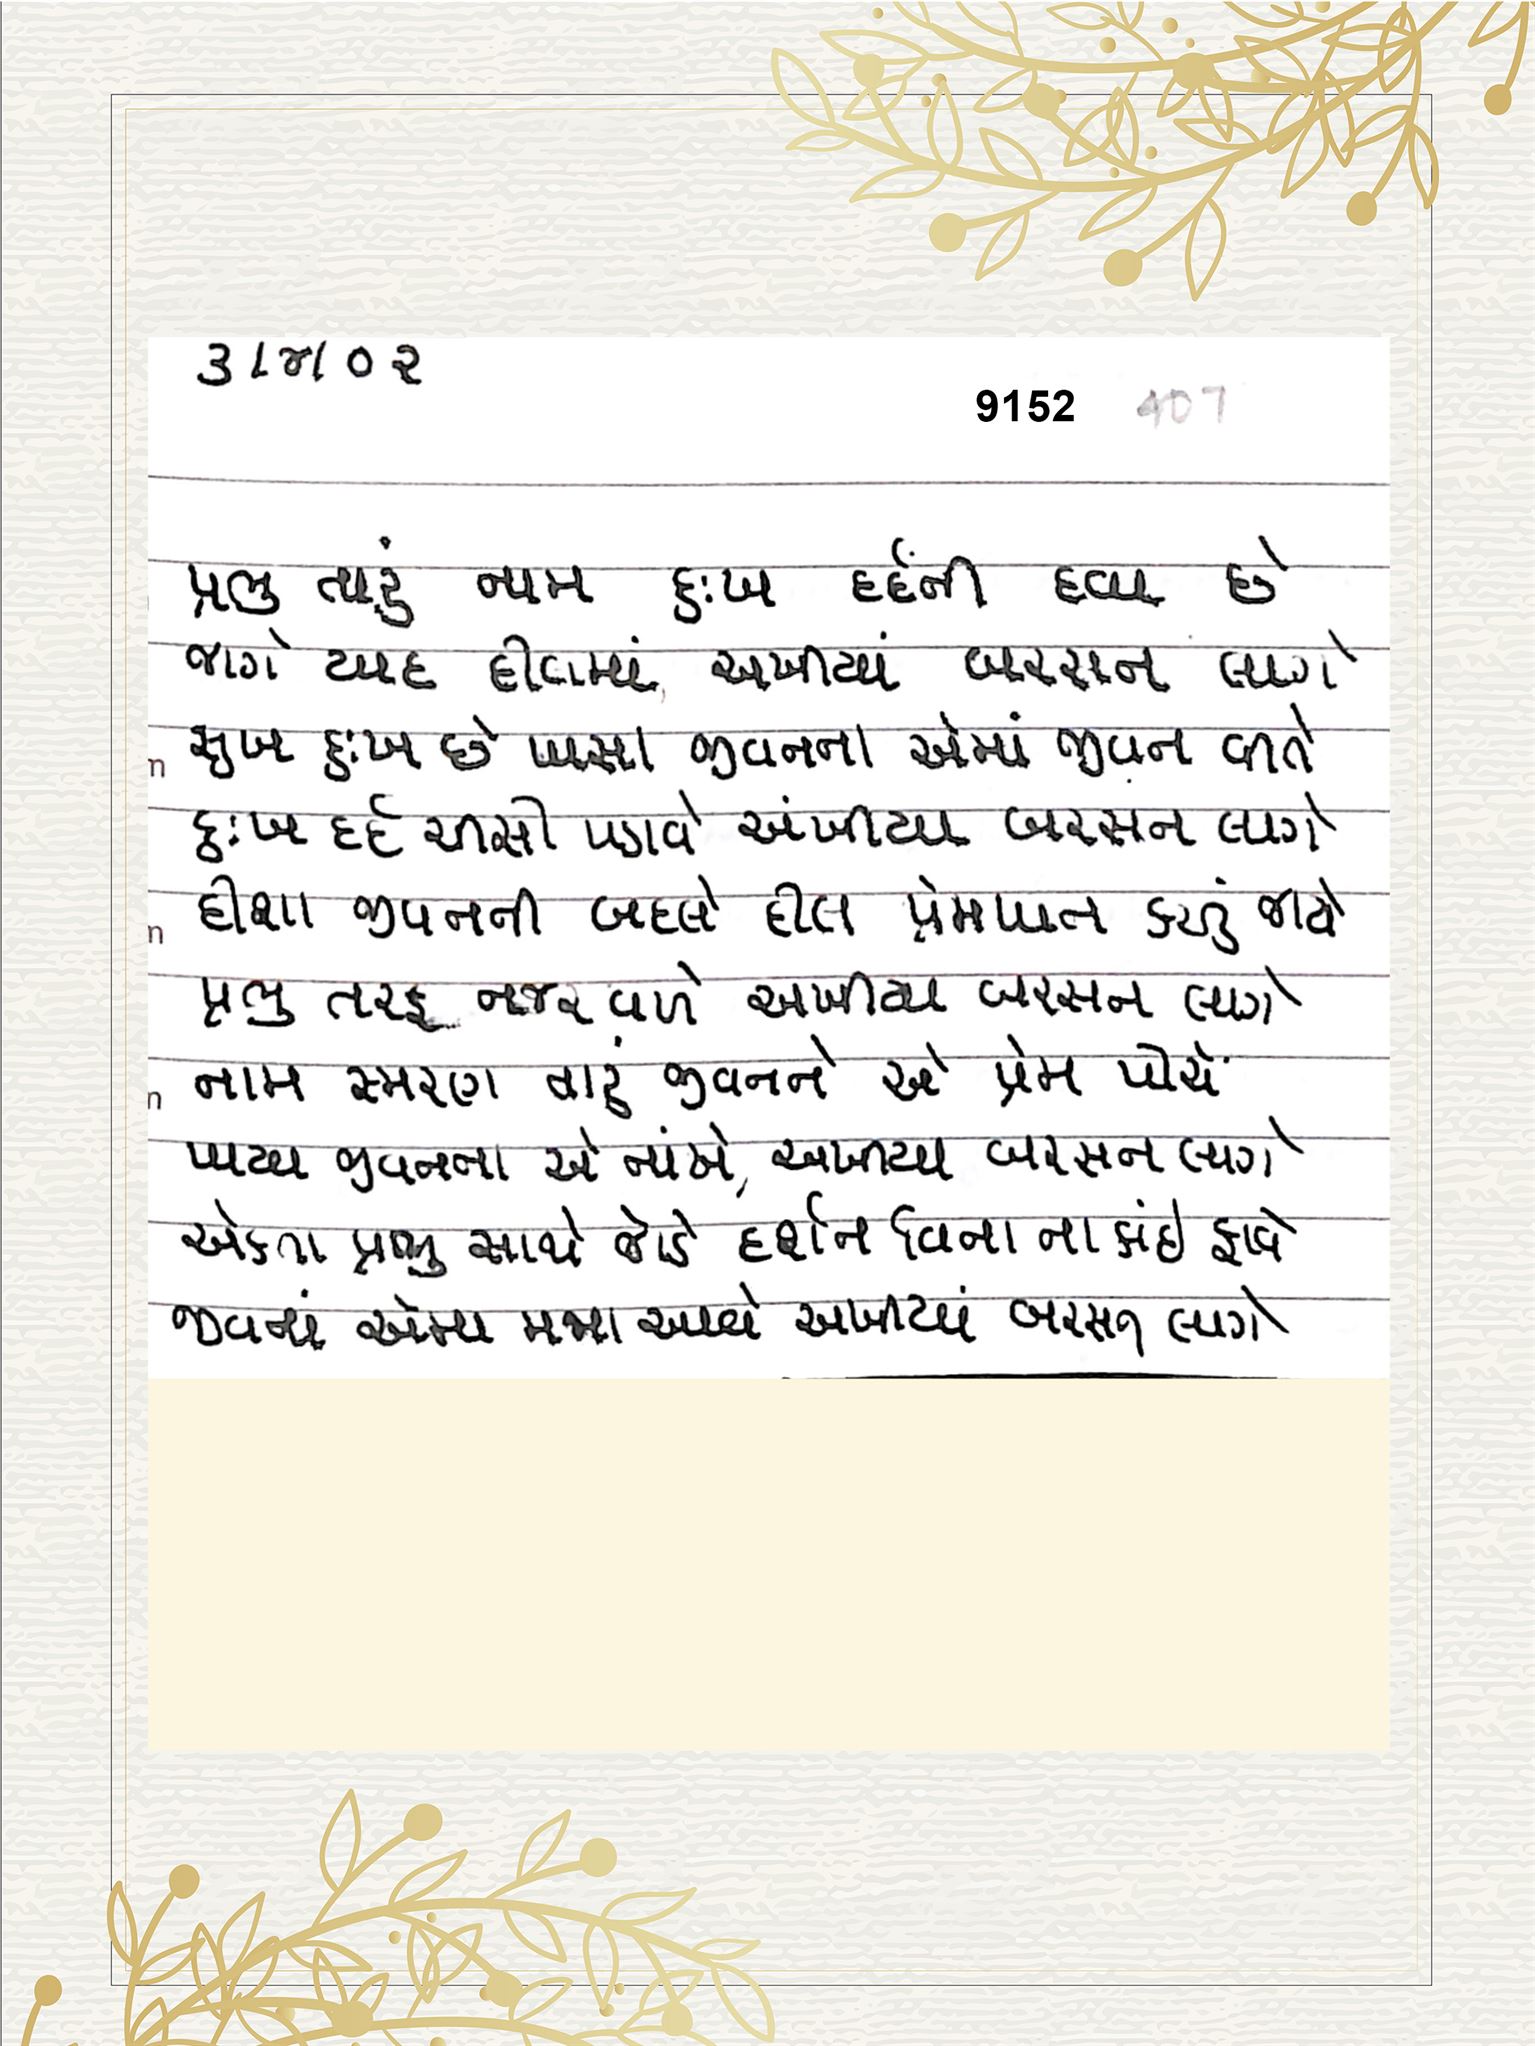 ૩/૪/૦૨
9152 407
પ્રભુ તારું નામ દુઃખ દર્દની દવા છે
જાગે યાદ દીલમાં, અખીયાં બરસન લાગે
સુખ દુઃખ છે પાસા જીવનના એમાં જીવન વીતે
દુઃખ દર્દ ચીસો પડાવે અંખીયા બરસન લાગે
દીશા જીવનની બદલે દીલ પ્રેમપાન કરતું જાયે
પ્રભુ તરફ નજર વળે અખીયા બરસન લાગે
નામ સ્મરણ તારું જીવનને એ પ્રેમ પોચે
પાયા જીવનના એ નાંખે, અખીયા બરસન લાગે
એકતા પ્રભુ સાથે જોડે દર્શન વિના ના કાંઇ ફાવે
જીવનાં એમા મજા આવે અખીયાં બરસન લાગે